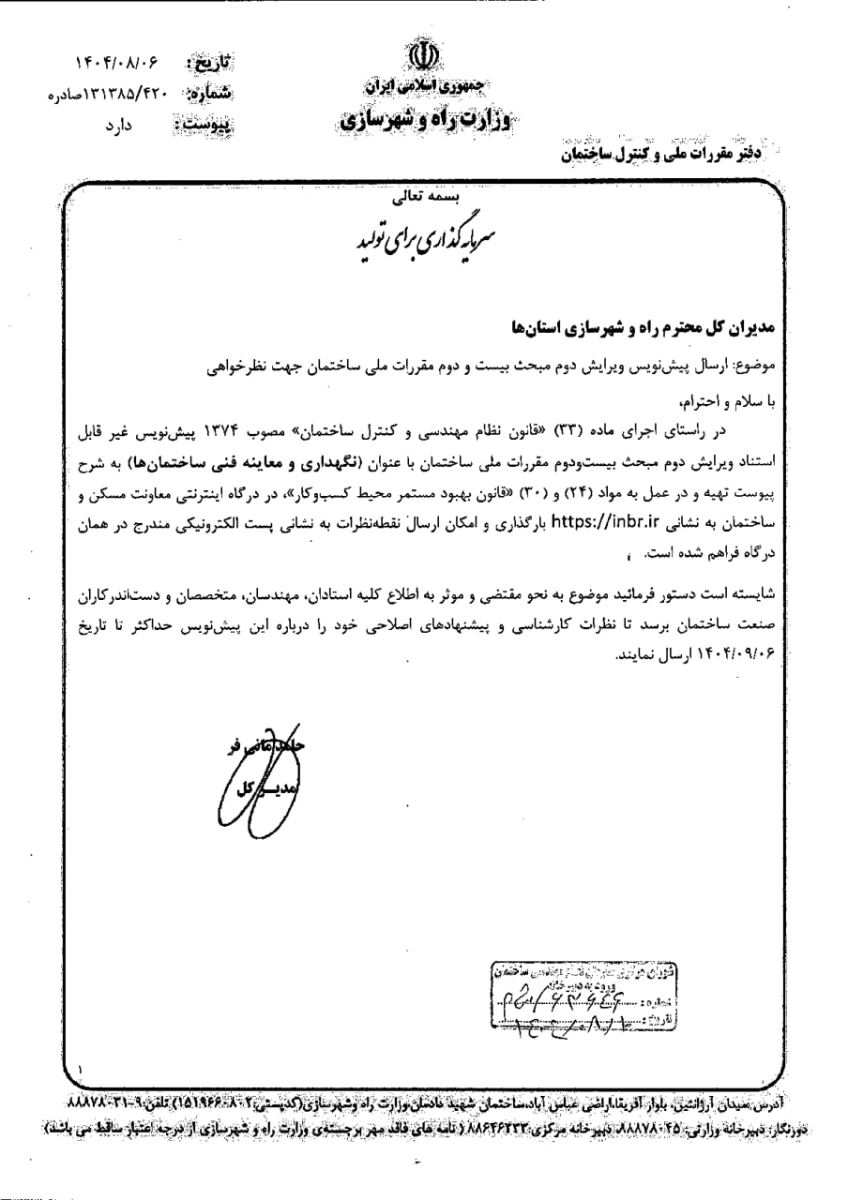 جمهوری اسلامی ایران
وزارت راه و شهرسازی
دفتر مقررات ملی و کنترل ساختمان
تاریخ: ۱۴۰۴/۰۸/۰۶
شماره: ۱۳۱۳۸۵/۴۲۰صادره
پیوست: دارد
بسمه تعالی
سرمایه‌گذاری برای تولید
مدیران کل محترم راه و شهرسازی استان‌ها
موضوع: ارسال پیش‌نویس ویرایش دوم مبحث بیست و دوم مقررات ملی ساختمان جهت نظرخواهی
با سلام و احترام،
در راستای اجرای ماده (۳۳) «قانون نظام مهندسی و کنترل ساختمان» مصوب ۱۳۷۴ پیش‌نویس غیر قابل
استناد ویرایش دوم مبحث بیست‌ودوم مقررات ملی ساختمان با عنوان (نگهداری و معاینه فنی ساختمان‌ها) به شرح
پیوست تهیه و در عمل به مواد (۲۴) و (۳۰) «قانون بهبود مستمر محیط کسب‌وکار»، در درگاه اینترنتی معاونت مسکن و
ساختمان به نشانی https://inbr.ir بارگذاری و امکان ارسال نقطه‌نظرات به نشانی پست الکترونیکی مندرج در همان
درگاه فراهم شده است.
شایسته است دستور فرمائید موضوع به نحو مقتضی و موثر به اطلاع کلیه استادان، مهندسان، متخصصان و دست‌اندرکاران
صنعت ساختمان برسد تا نظرات کارشناسی و پیشنهادهای اصلاحی خود را درباره این پیش‌نویس حداکثر تا تاریخ
۱۴۰۴/۰۹/۰۶ ارسال نمایند.
حامد مانی فر
مدیر کل
شورای مرکزی سازمان نظام مهندسی ساختمان
ورود به دبیرخانه
شماره:
تاریخ:
۱
آدرس:میدان آرژانتین، بلوار آفریقا،اراضی عباس آباد،ساختمان شهید دادمان،وزارت راه وشهرسازی(کدپستی:۱۵۱۹۶۶۰۸۰۲) تلفن:۹-۸۸۸۷۸۰۳۱
دورنگار: دبیرخانه وزارتی: ۸۸۸۷۸۰۴۵، دبیرخانه مرکزی:۸۸۶۴۶۲۳۳ ( نامه های فاقد مهر برجسته‌ی وزارت راه و شهرسازی از درجه اعتبار ساقط می باشد)